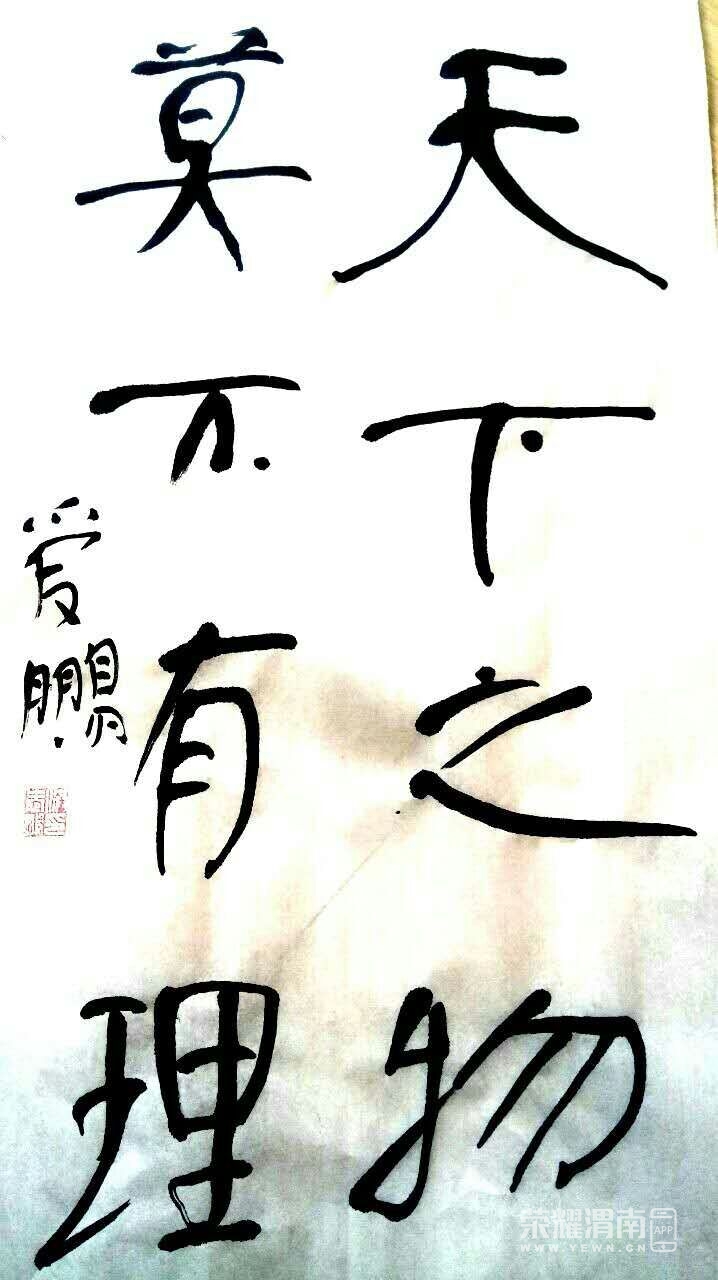 天下之物
莫不有理
爱鹏
荣耀渭南 APP
WWW.YEWN.CN